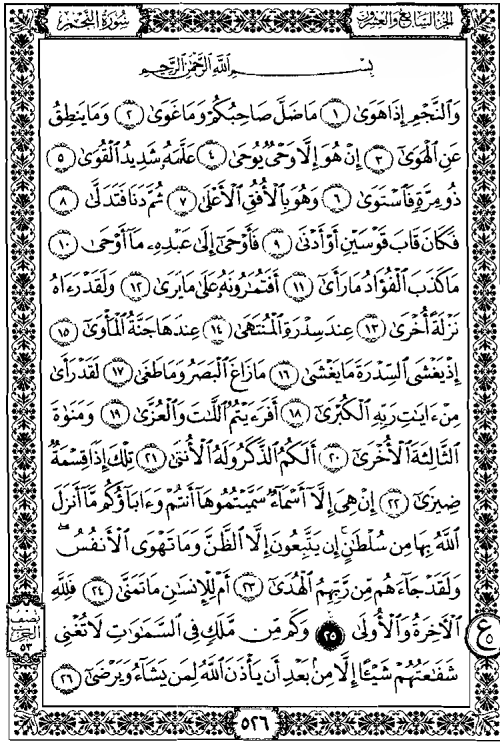 الجزء السابع والعشرون
سورة النجم
بِسْمِ اللَّهِ الرَّحْمَٰنِ الرَّحِيمِ
وَالنَّجْمِ إِذَا هَوَىٰ ١ مَا ضَلَّ صَاحِبُكُمْ وَمَا غَوَىٰ ٢ وَمَا يَنطِقُ
عَنِ الْهَوَىٰ ٣ إِنْ هُوَ إِلَّا وَحْيٌ يُوحَىٰ ٤ عَلَّمَهُ شَدِيدُ الْقُوَىٰ ٥
ذُو مِرَّةٍ فَاسْتَوَىٰ ٦ وَهُوَ بِالْأُفُقِ الْأَعْلَىٰ ٧ ثُمَّ دَنَا فَتَدَلَّىٰ ٨
فَكَانَ قَابَ قَوْسَيْنِ أَوْ أَدْنَىٰ ٩ فَأَوْحَىٰ إِلَىٰ عَبْدِهِ مَا أَوْحَىٰ ١٠
مَا كَذَبَ الْفُؤَادُ مَا رَأَىٰ ١١ أَفَتُمَارُونَهُ عَلَىٰ مَا يَرَىٰ ١٢ وَلَقَدْ رَءَاهُ
نَزْلَةً أُخْرَىٰ ١٣ عِندَ سِدْرَةِ الْمُنتَهَىٰ ١٤ عِندَهَا جَنَّةُ الْمَأْوَىٰ ١٥
إِذْ يَغْشَى السِّدْرَةَ مَا يَغْشَىٰ ١٦ مَا زَاغَ الْبَصَرُ وَمَا طَغَىٰ ١٧ لَقَدْ رَأَىٰ
مِنْ ءَايَٰتِ رَبِّهِ الْكُبْرَىٰ ١٨ أَفَرَءَيْتُمُ اللَّٰتَ وَالْعُزَّىٰ ١٩ وَمَنَوٰةَ
الثَّالِثَةَ الْأُخْرَىٰ ٢٠ أَلَكُمُ الذَّكَرُ وَلَهُ الْأُنثَىٰ ٢١ تِلْكَ إِذًا قِسْمَةٌ
ضِيزَىٰ ٢٢ إِنْ هِيَ إِلَّا أَسْمَاءٌ سَمَّيْتُمُوهَا أَنتُمْ وَءَابَاؤُكُم مَّا أَنزَلَ
اللَّهُ بِهَا مِن سُلْطَٰنٍ ۚ إِن يَتَّبِعُونَ إِلَّا الظَّنَّ وَمَا تَهْوَى الْأَنفُسُ ۖ
وَلَقَدْ جَاءَهُم مِّن رَّبِّهِمُ الْهُدَىٰ ٢٣ أَمْ لِلْإِنسَٰنِ مَا تَمَنَّىٰ ٢٤ فَلِلَّهِ
الْءَاخِرَةُ وَالْأُولَىٰ ٢٥ وَكَم مِّن مَّلَكٍ فِي السَّمَٰوَٰتِ لَا تُغْنِي
شَفَٰعَتُهُمْ شَيْـًٔا إِلَّا مِن بَعْدِ أَن يَأْذَنَ اللَّهُ لِمَن يَشَاءُ وَيَرْضَىٰ ٢٦
ع
٥
نصف
الحزب
٥٣
٥٢٦